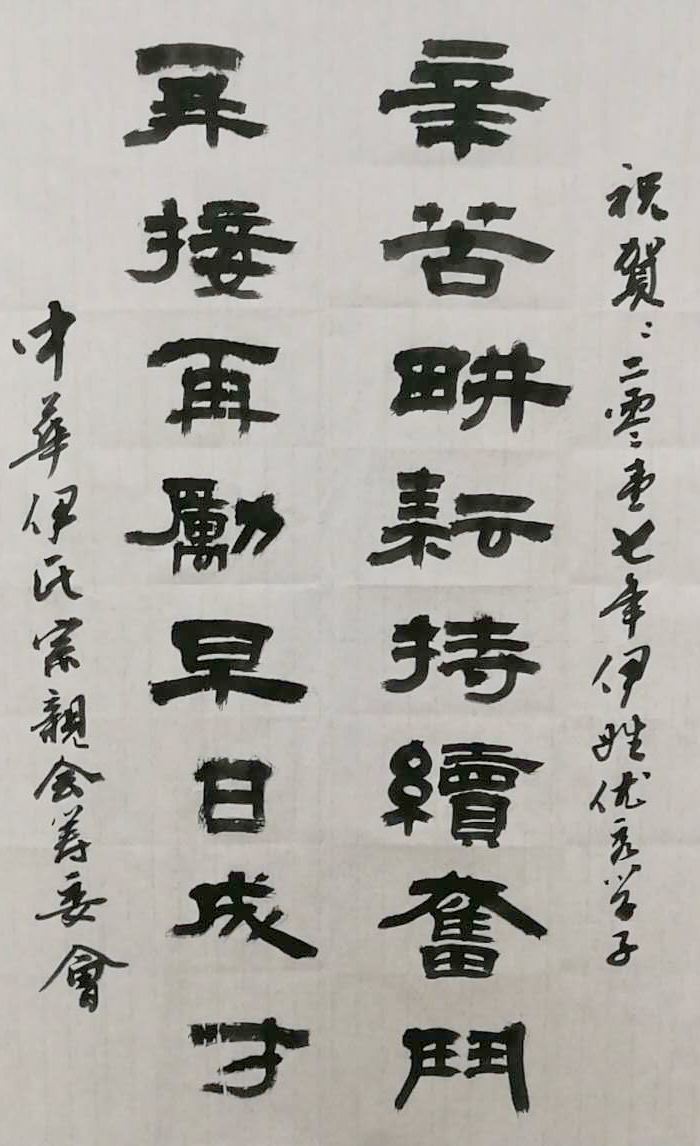 祝賀：二零壹七年伊姓优秀学子
辛苦畊耘持續奮鬥
再接再勵早日成才
中華伊氏宗親会筹委會